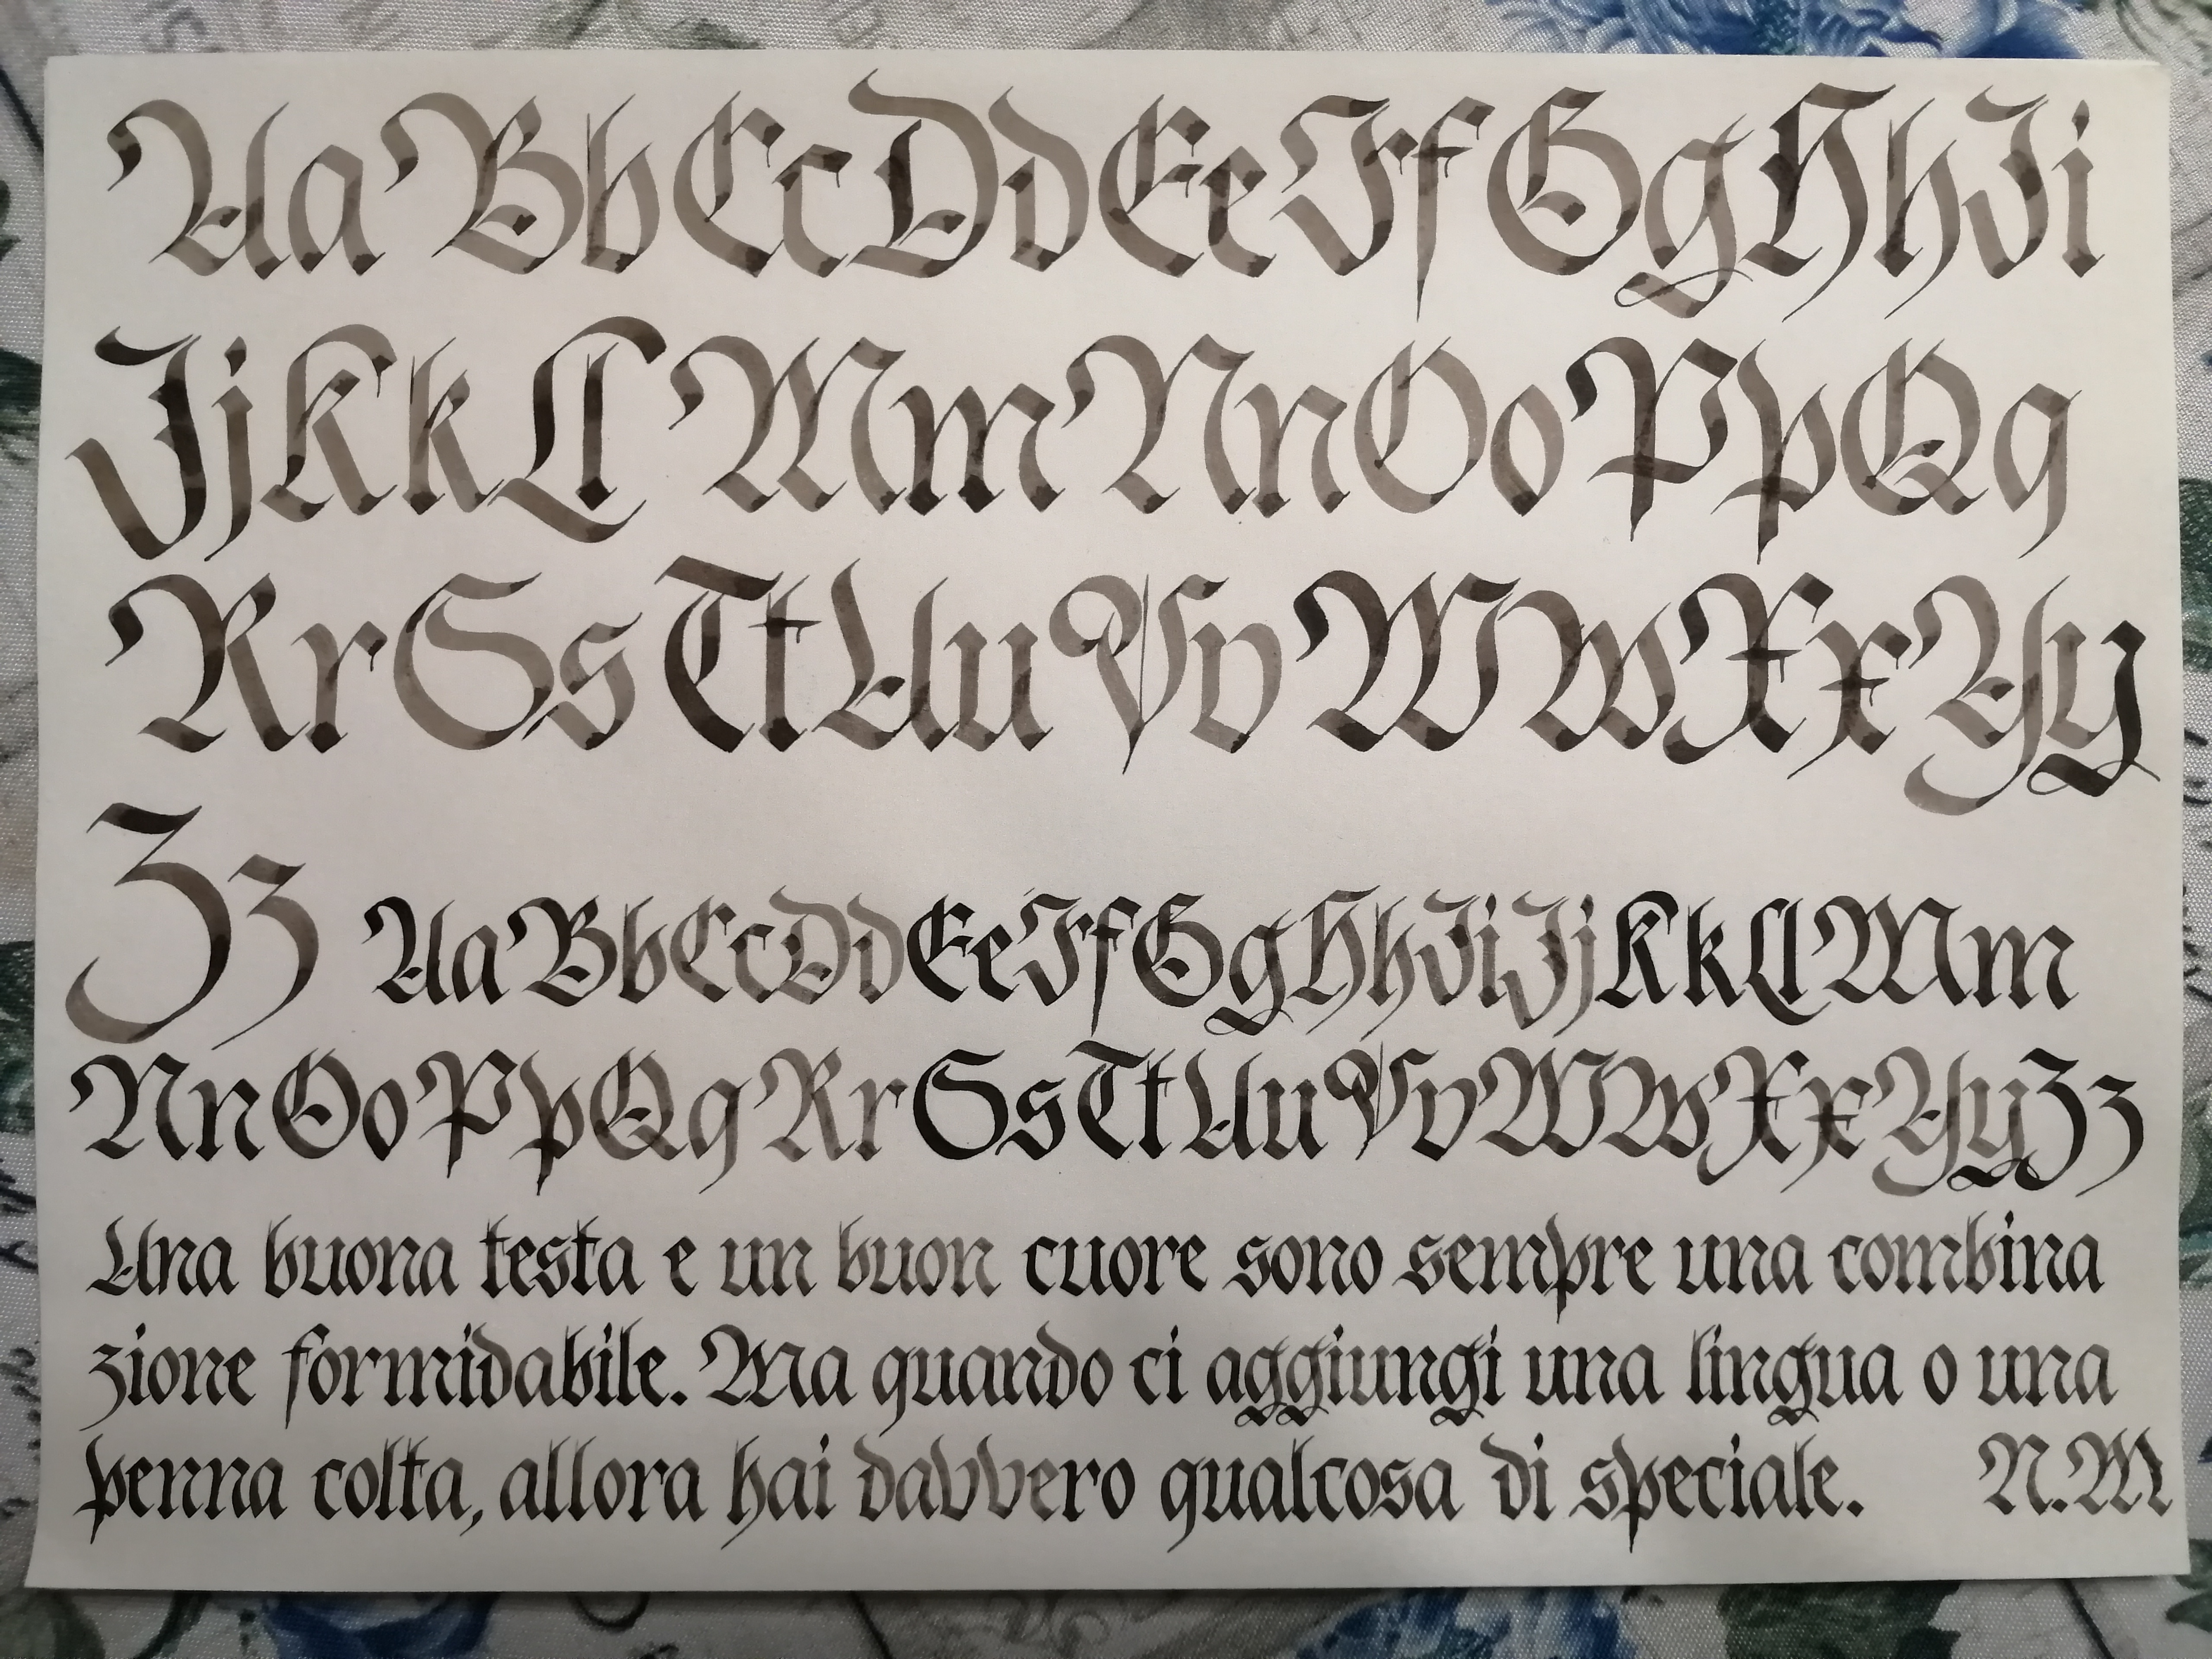 Aa Bb Cc Dd Ee Ff Gg Hh Ii
Jj Kk Ll Mm Nn Oo Pp Qq
Rr Ss Tt Uu Vv Ww Xx Yy
Zz Aa Bb Cc Dd Ee Ff Gg Hh Ii Jj Kk Ll Mm
Nn Oo Pp Qq Rr Ss Tt Uu Vv Ww Xx Yy Zz
Una buona testa e un buon cuore sono sempre una combina
zione formidabile. Ma quando ci aggiungi una lingua o una
penna colta, allora hai davvero qualcosa di speciale. N.M